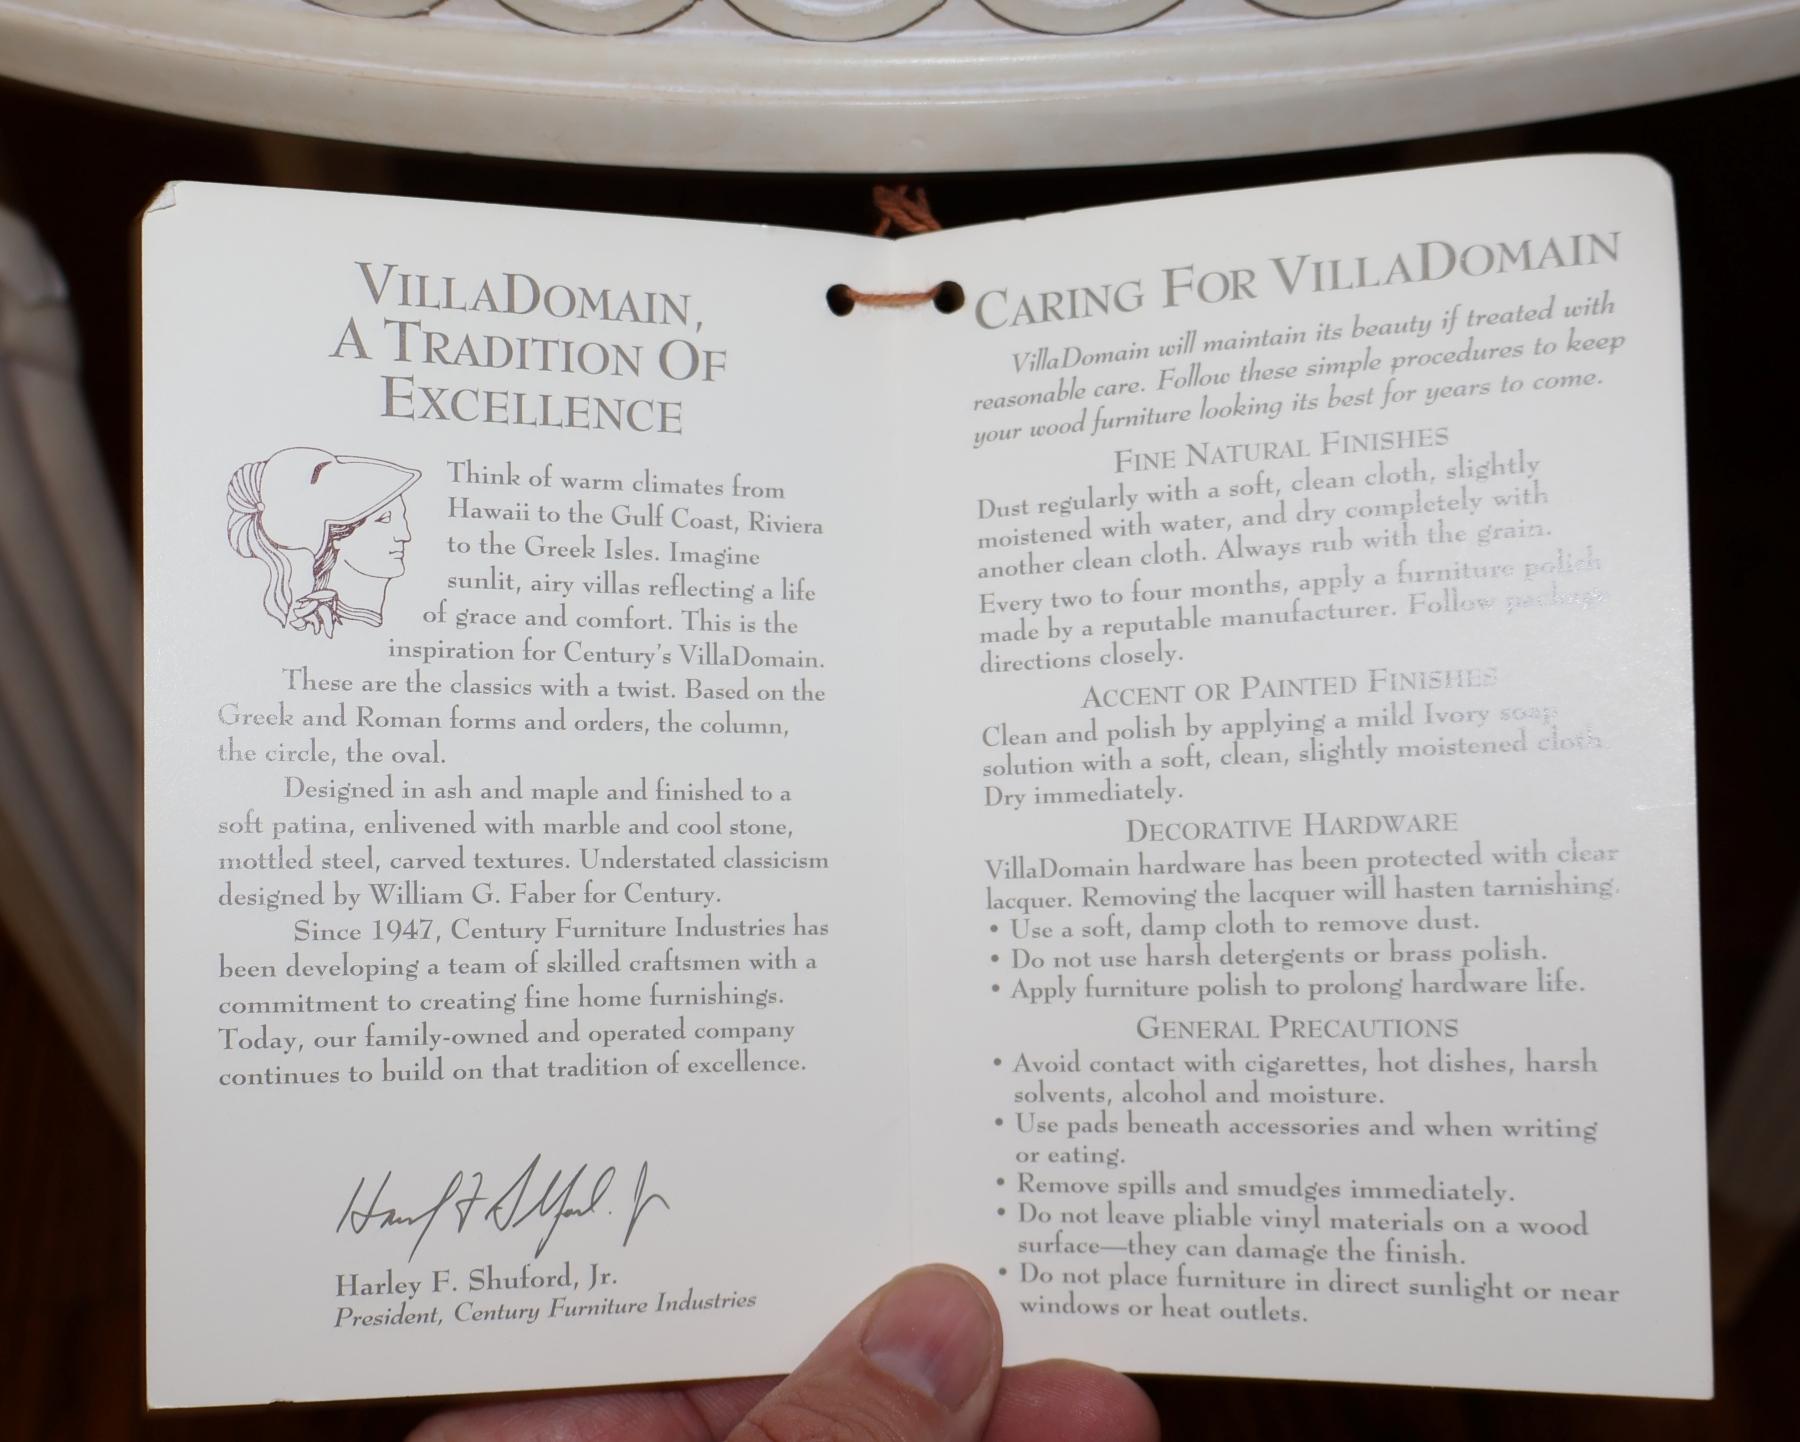 VILLADOMAIN,
A TRADITION OF
EXCELLENCE
Think of warm climates from
Hawaii to the Gulf Coast, Riviera
to the Greek Isles. Imagine
sunlit, airy villas reflecting a life
of grace and comfort. This is the
inspiration for Century's VillaDomain.
These are the classics with a twist. Based on the
Greek and Roman forms and orders, the column,
the circle, the oval.
Designed in ash and maple and finished to a
soft patina, enlivened with marble and cool stone,
mottled steel, carved textures. Understated classicism
designed by William G. Faber for Century.
Since 1947, Century Furniture Industries has
been developing a team of skilled craftsmen with a
commitment to creating fine home furnishings.
Today, our family-owned and operated company
continues to build on that tradition of excellence.
Harley F. Shuford, Jr.
President, Century Furniture Industries
CARING FOR VILLADOMAIN
VillaDomain will maintain its beauty if treated with
reasonable care. Follow these simple procedures to keep
your wood furniture looking its best for years to come.
FINE NATURAL FINISHES
Dust regularly with a soft, clean cloth, slightly
moistened with water, and dry completely with
another clean cloth. Always rub with the grain.
Every two to four months, apply a furniture polish
made by a reputable manufacturer. Follow package
directions closely.
ACCENT OR PAINTED FINISHES
Clean and polish by applying a mild Ivory soap
solution with a soft, clean, slightly moistened cloth.
Dry immediately.
DECORATIVE HARDWARE
VillaDomain hardware has been protected with clear
lacquer. Removing the lacquer will hasten tarnishing.
• Use a soft, damp cloth to remove dust.
• Do not use harsh detergents or brass polish.
• Apply furniture polish to prolong hardware life.
GENERAL PRECAUTIONS
• Avoid contact with cigarettes, hot dishes, harsh
solvents, alcohol and moisture.
• Use pads beneath accessories and when writing
or eating.
• Remove spills and smudges immediately.
• Do not leave pliable vinyl materials on a wood
surface—they can damage the finish.
• Do not place furniture in direct sunlight or near
windows or heat outlets.